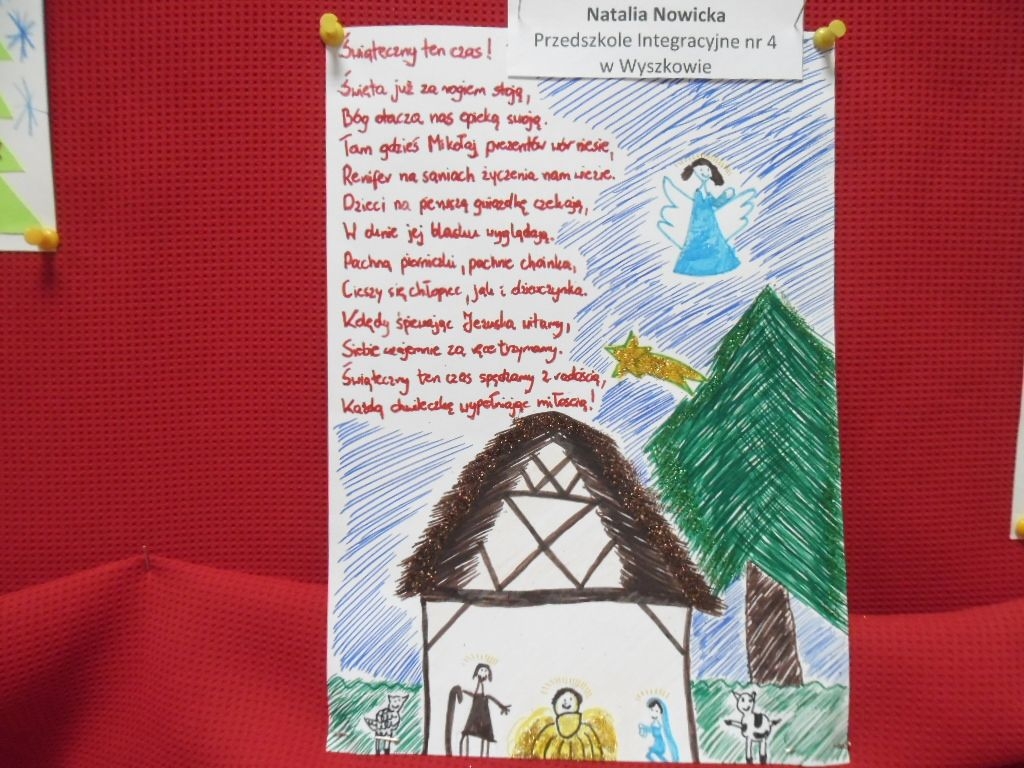 Natalia Nowicka
Przedszkole Integracyjne nr 4
w Wyszkowie
Świąteczny ten czas!
Święta już za rogiem stoją,
Bóg otacza nas opieką swoją.
Tam gdzieś Mikołaj prezentów wór niesie,
Renifer na saniach życzenia nam wiezie.
Dzieci na pierwszą gwiazdkę czekają,
W oknie jej blasku wyglądają.
Pachną pierniczki, pachnie choinka,
Cieszy się chłopiec, jak i dziewczynka.
Kolędy śpiewając Jezuska witamy,
Siebie wzajemnie za ręce trzymamy.
Świąteczny ten czas spędzamy z radością,
Każdą chwileczkę wypełniając miłością!